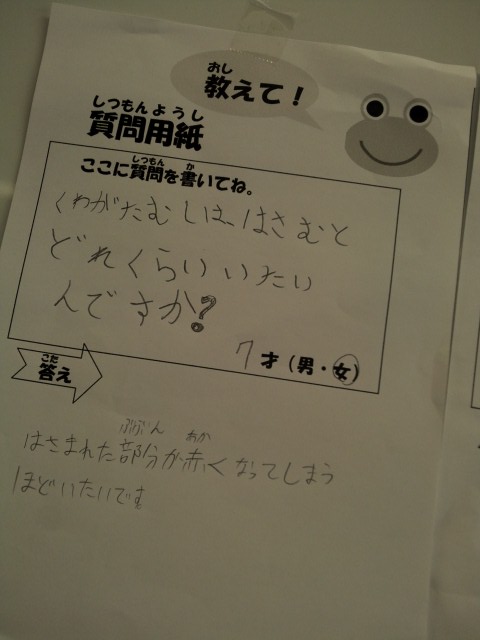 おし
教えて！
しつもんようし
質問用紙
しつもん か
ここに質問を書いてね。
くわがたむしは、はさむと
どれくらいいたい
んですか?
7才（男・女）
こた
答え
ぶぶん あか
はさまれた部分が赤くなってしまう
ほどいたいです。